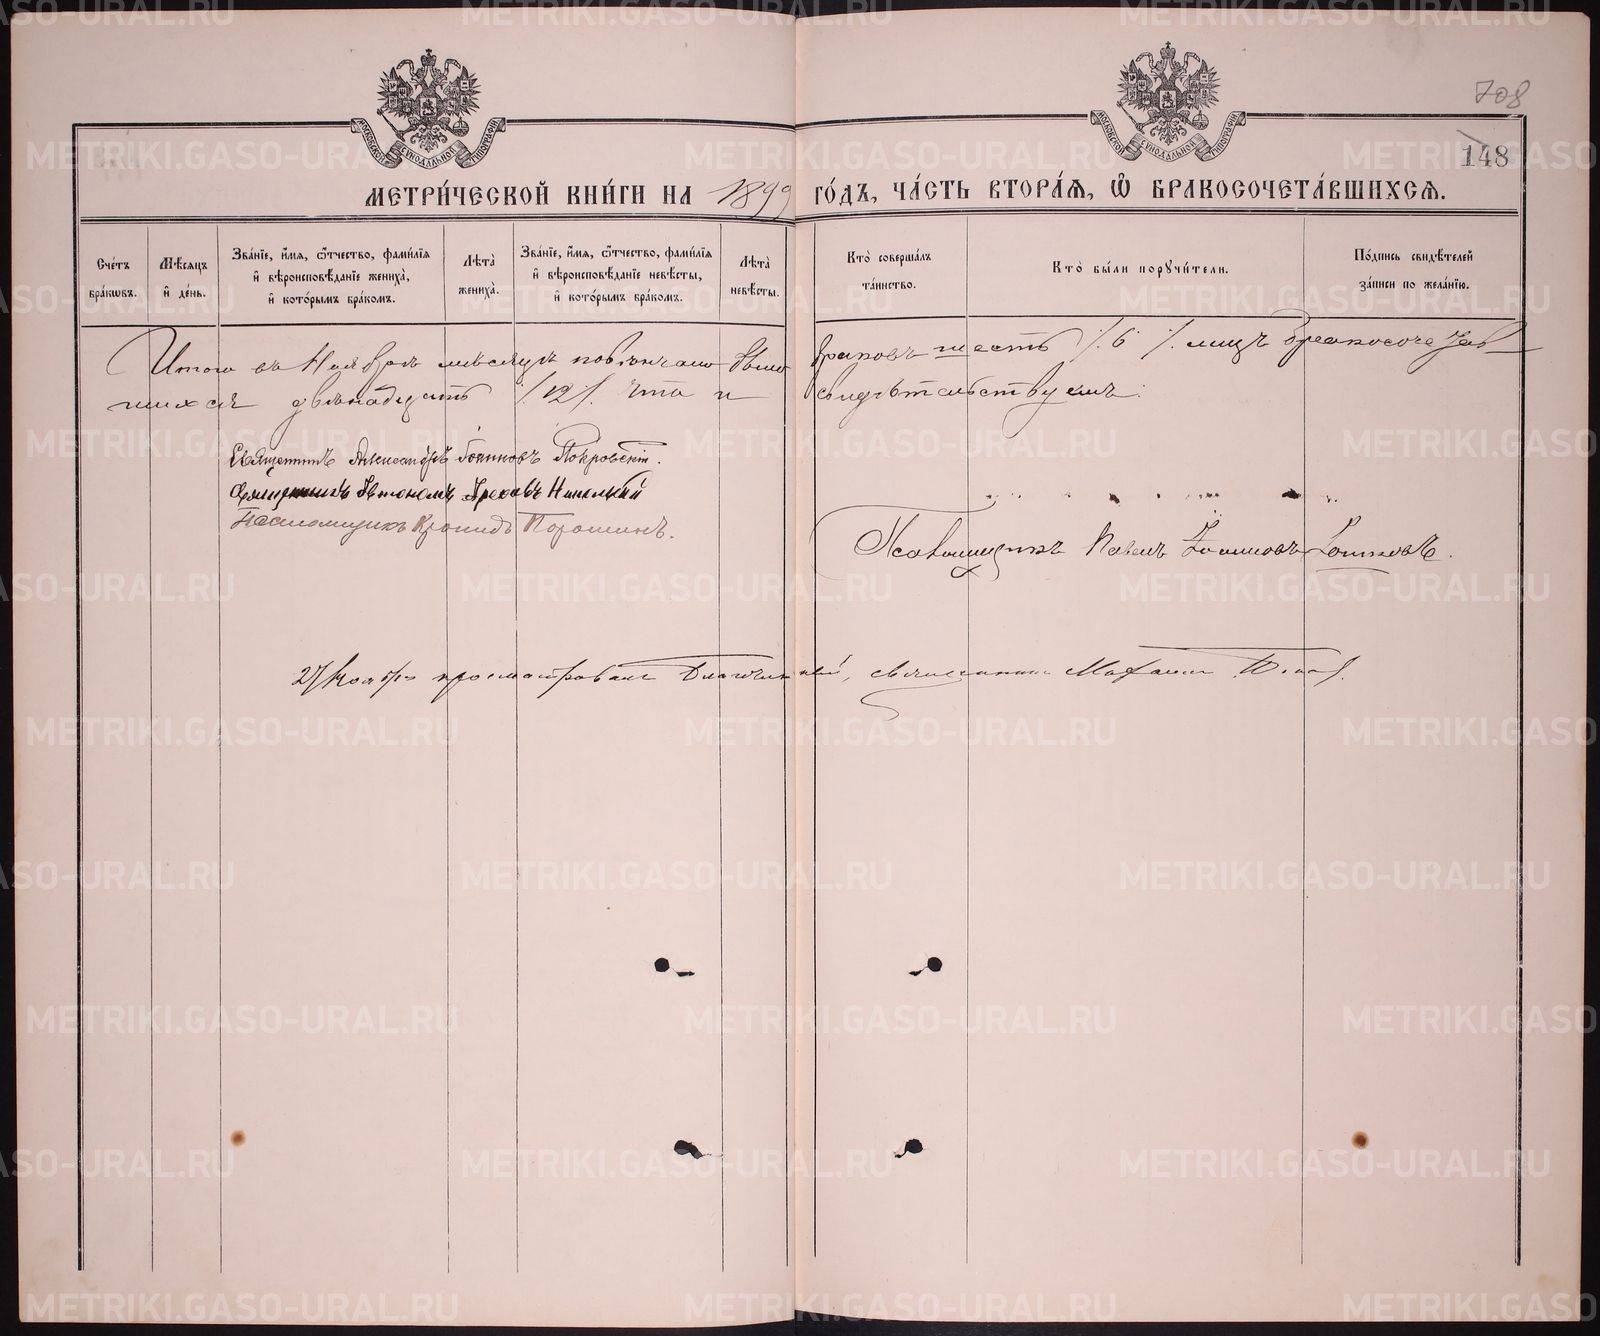 708
148
МОСКОВСКОЙ СУНОДАЛЬНОЙ ТИПОГРАФІИ
МОСКОВСКОЙ СУНОДАЛЬНОЙ ТИПОГРАФІИ
МЕТРИ́ЧЕСКОЙ КНИ́ГИ НА 1899 ГО́ДЪ, ЧА́СТЬ ВТОРА́Ѧ, Ѡ҆ БРАКОСОЧЕТА́ВШИХСѦ.
Сче́тъ бра́кѡвъ.
Мѣ́сѧцъ и҆ де́нь.
Зва́нїе, и҆́мѧ, ѻ҆́тчество, фами́лїѧ и҆ вѣроисповѣ́данїе жениха̀, и҆ кото́рымъ бра́комъ.
Лѣ́та жениха̀.
Зва́нїе, и҆́мѧ, ѻ҆́тчество, фами́лїѧ и҆ вѣроисповѣ́данїе невѣ́сты, и҆ кото́рымъ бра́комъ.
Лѣ́та невѣ́сты.
Кто̀ соверша́лъ та́инство.
Кто̀ бы́ли поручи́тели.
По́дпись свидѣ́телей за́писи по жела́нїю.
Итого въ Ноябрѣ мѣсяцѣ повѣнчано было браковъ шесть /.6./. лицъ бракосочетав-
шихся двѣнадцать /.12/. что и свидѣтельствуемъ:
Священникъ Александръ Іоанновъ Покровскій.
Священникъ Автономъ Никольскій
Псаломщикъ Кронидъ Порошинъ.
Псаломщикъ Павелъ Іоанновъ
27 Ноября просмотрѣвалъ Благочинный, священникъ
METRIKI.GASO-URAL.RU